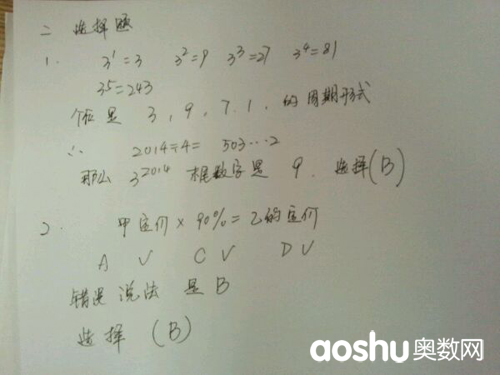 二 选择题
1. 3¹=3 3²=9 3³=27 3⁴=81
3⁵=243
个位是 3, 9, 7. 1, 的周期形式
∴ 2014÷4= 503…2
那么 3²⁰¹⁴ 尾数字是 9. 选择(B)
2. 甲定价×90%=乙的定价
A V C V D V
错误说法是B
选择 (B)
aoshu奥数网